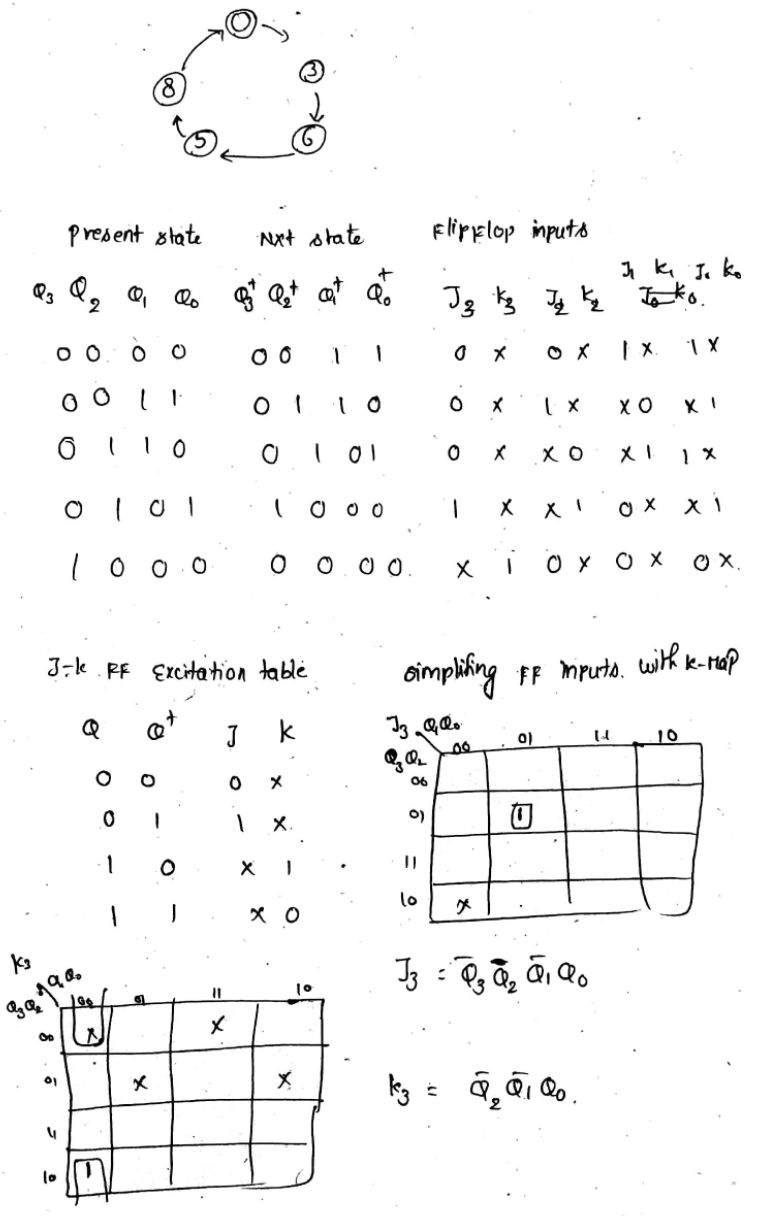 0
3
8
5 6
Present state Nxt state FlipFlop inputs
J₁ k₁ J₀ k₀
Q₃ Q₂ Q₁ Q₀ Q₃⁺ Q₂⁺ Q₁⁺ Q₀⁺ J₃ k₃ J₂ k₂
0 0 0 0 0 0 1 1 0 x 0 x 1 x 1 x
0 0 1 1 0 1 1 0 0 x 1 x x 0 x 1
0 1 1 0 0 1 0 1 0 x x 0 x 1 1 x
0 1 0 1 1 0 0 0 1 x x 1 0 x x 1
1 0 0 0 0 0 0 0. x 1 0 x 0 x 0 x.
J-k FF Excitation table
Q Q⁺ J K
0 0 0 x
0 1 1 x
1 0 x 1
1 1 x 0
simplifing FF inputs. with k-map
J₃ Q₁Q₀
00 01 11 10
Q₃Q₂
00
01 1
11
10 x
J₃ = Q̅₃ Q̅₂ Q̅₁ Q₀
k₃ Q₁Q₀
Q₃Q₂ 00 01 11 10
00 x x
01 x x
11
10 1
k₃ = Q̅₂ Q̅₁ Q₀.